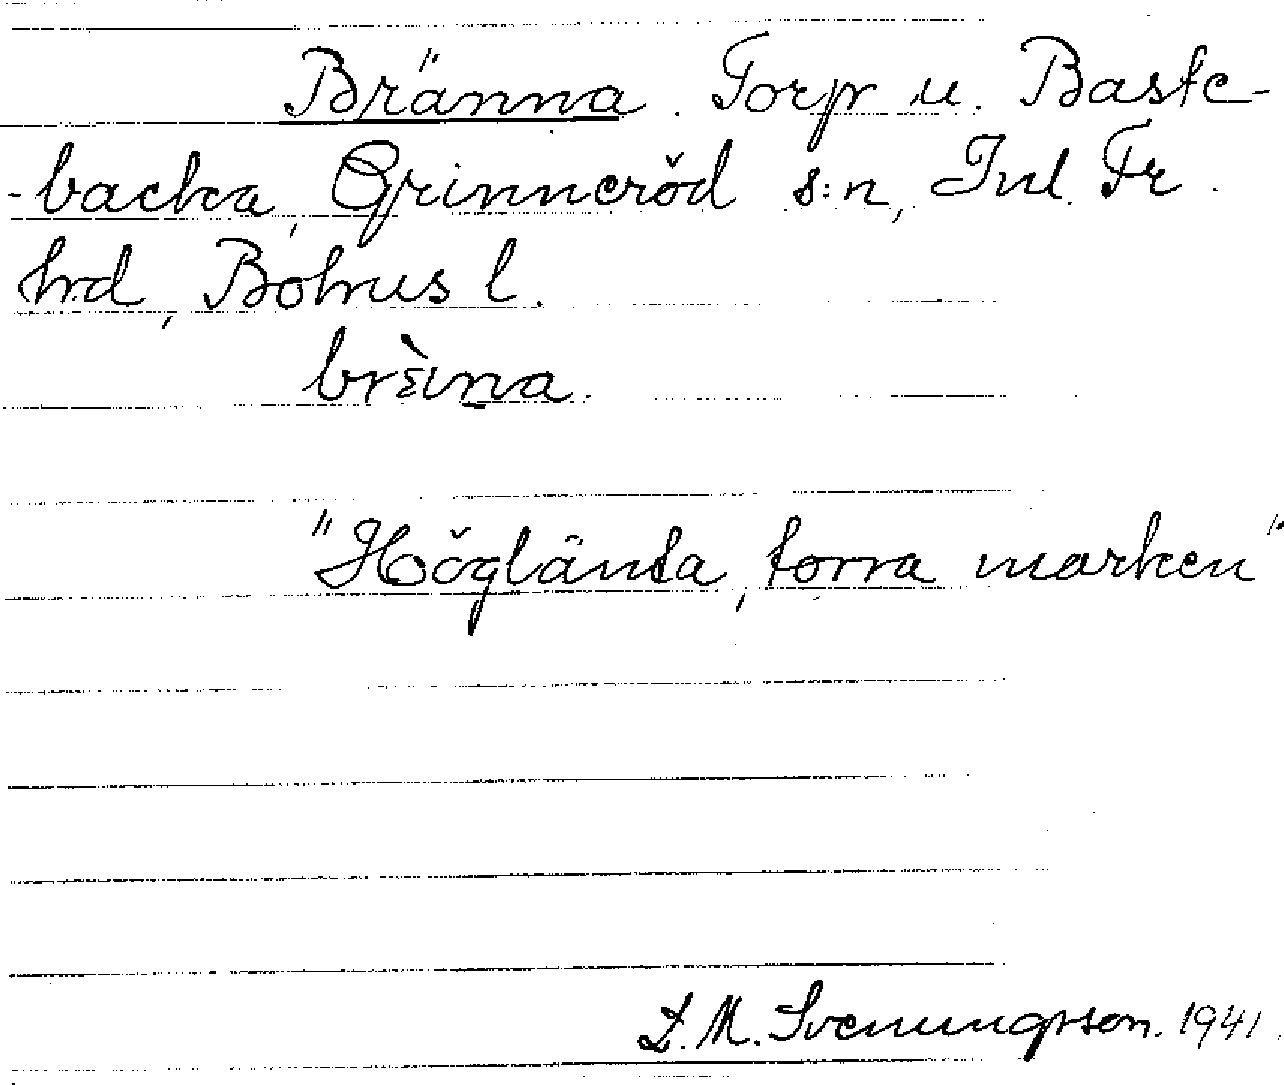 Bränna. Torp u. Baste-
-backa, Grinneröd s:n, Inl. Fr.
hd, Bohus l.
brèna.
"Höglänta, torra marken"
D. M. Svenungsson. 1941.